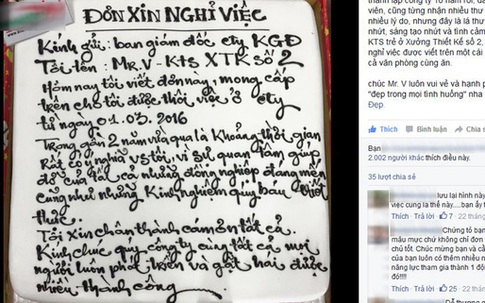 ĐƠN XIN NGHỈ VIỆC
Kính gửi: ban giám đốc cty KGĐ
Tôi tên: MR.V - KTS XTK SỐ 2
Hôm nay tôi viết đơn này, mong cấp
trên cho tôi được thôi việc ở cty
từ ngày 01.03.2016
Trong gần 2 năm vừa qua là khoảng thời gian
Rất có ý nghĩa với tôi, vì sự quan tâm giúp
đỡ của tất cả những đồng nghiệp đáng mến
cũng như những kinh nghiệm quý báu
thức.
Tôi xin chân thành cám ơn tất cả.
Kính chúc quý công ty cùng tất cả mọi
người luôn phát triển và gặt hái được
nhiều thành công
thành lập công ty 10 năm rồi,
viên, cũng từng nhận nhiều thư
nhiều lý do, nhưng đây là lá thư
nhứt, sáng tạo nhứt và tình cảm
KTS trẻ ở Xưởng Thiết Kế số 2,
nghỉ việc được viết trên một cái
cả văn phòng cùng ăn.
chúc Mr. V luôn vui vẻ và hạnh p
"đẹp trong mọi tình huống" nha
Đẹp.
Thích Bình luận Chia s
Bạn
2.002 người khác thích điều này.
35 lượt chia sẻ
lưu lại hình này
việc cung la thế này.....bạn ấy t
Thích · Trả lời · 7 · 22 tháng
Chứng tỏ bạn
mẫu mực chứ không chỉ đơn
chủ tốt. Chúc mừng bạn và cả
của bạn luôn có thêm nhiều n
năng lực tham gia thành 1 đội
đó!!!!
Thích · Trả lời · 25 · 22 tháng
Dễ thương